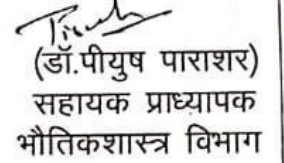 (डॉ.पीयुष पाराशर)
सहायक प्राध्यापक
भौतिकशास्त्र विभाग